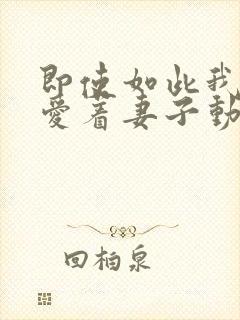 即使如此我
愛着妻子動
回柏泉